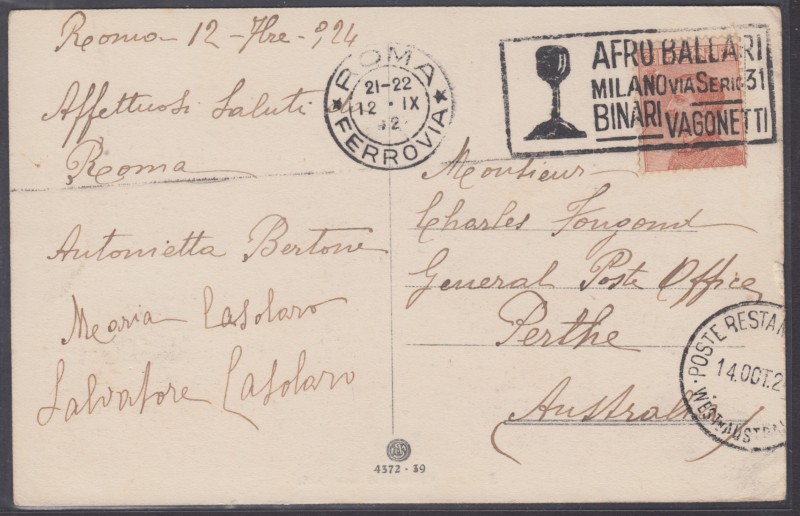 Roma 12-7bre-924
Affettuosi Saluti
Roma
Antonietta Bertone
Maria Casolaro
Salvatore Casolaro
ROMA
21-22
12 · IX
FERROVIA
AFRO BALLARI
MILANO VIA SERIO 31
BINARI VAGONETTI
Monsieur
Charles
General Poste Office
Perthe
Australia
POSTE RESTAN
14.OCT.2
WEST-AUSTRAL
4372 - 39